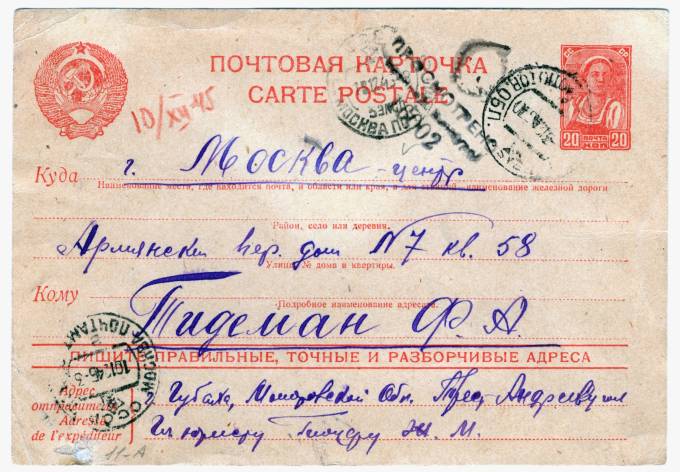 ПОЧТОВАЯ КАРТОЧКА
CARTE POSTALE
10/XII 45
ПРОСМОТРЕНО
20 ПОЧТА 20
Куда г. Москва-центр
Наименование места, где находится почта, и области или края, а для станций, наименование железной дороги
Район, село или деревня.
Армянский пер. дом N7 кв. 58
Улица, № дома и квартиры.
Кому
Подробное наименование адресата.
Тидеман Ф. А.
ПИШИТЕ ПРАВИЛЬНЫЕ, ТОЧНЫЕ И РАЗБОРЧИВЫЕ АДРЕСА
МОСКВА ПОЧТАМТ
Адрес отправителя
Adresse de l'expéditeur
г. Губаха, Молотовской Обл. Трест Андреевуголь
Гл юристу М.
11-А